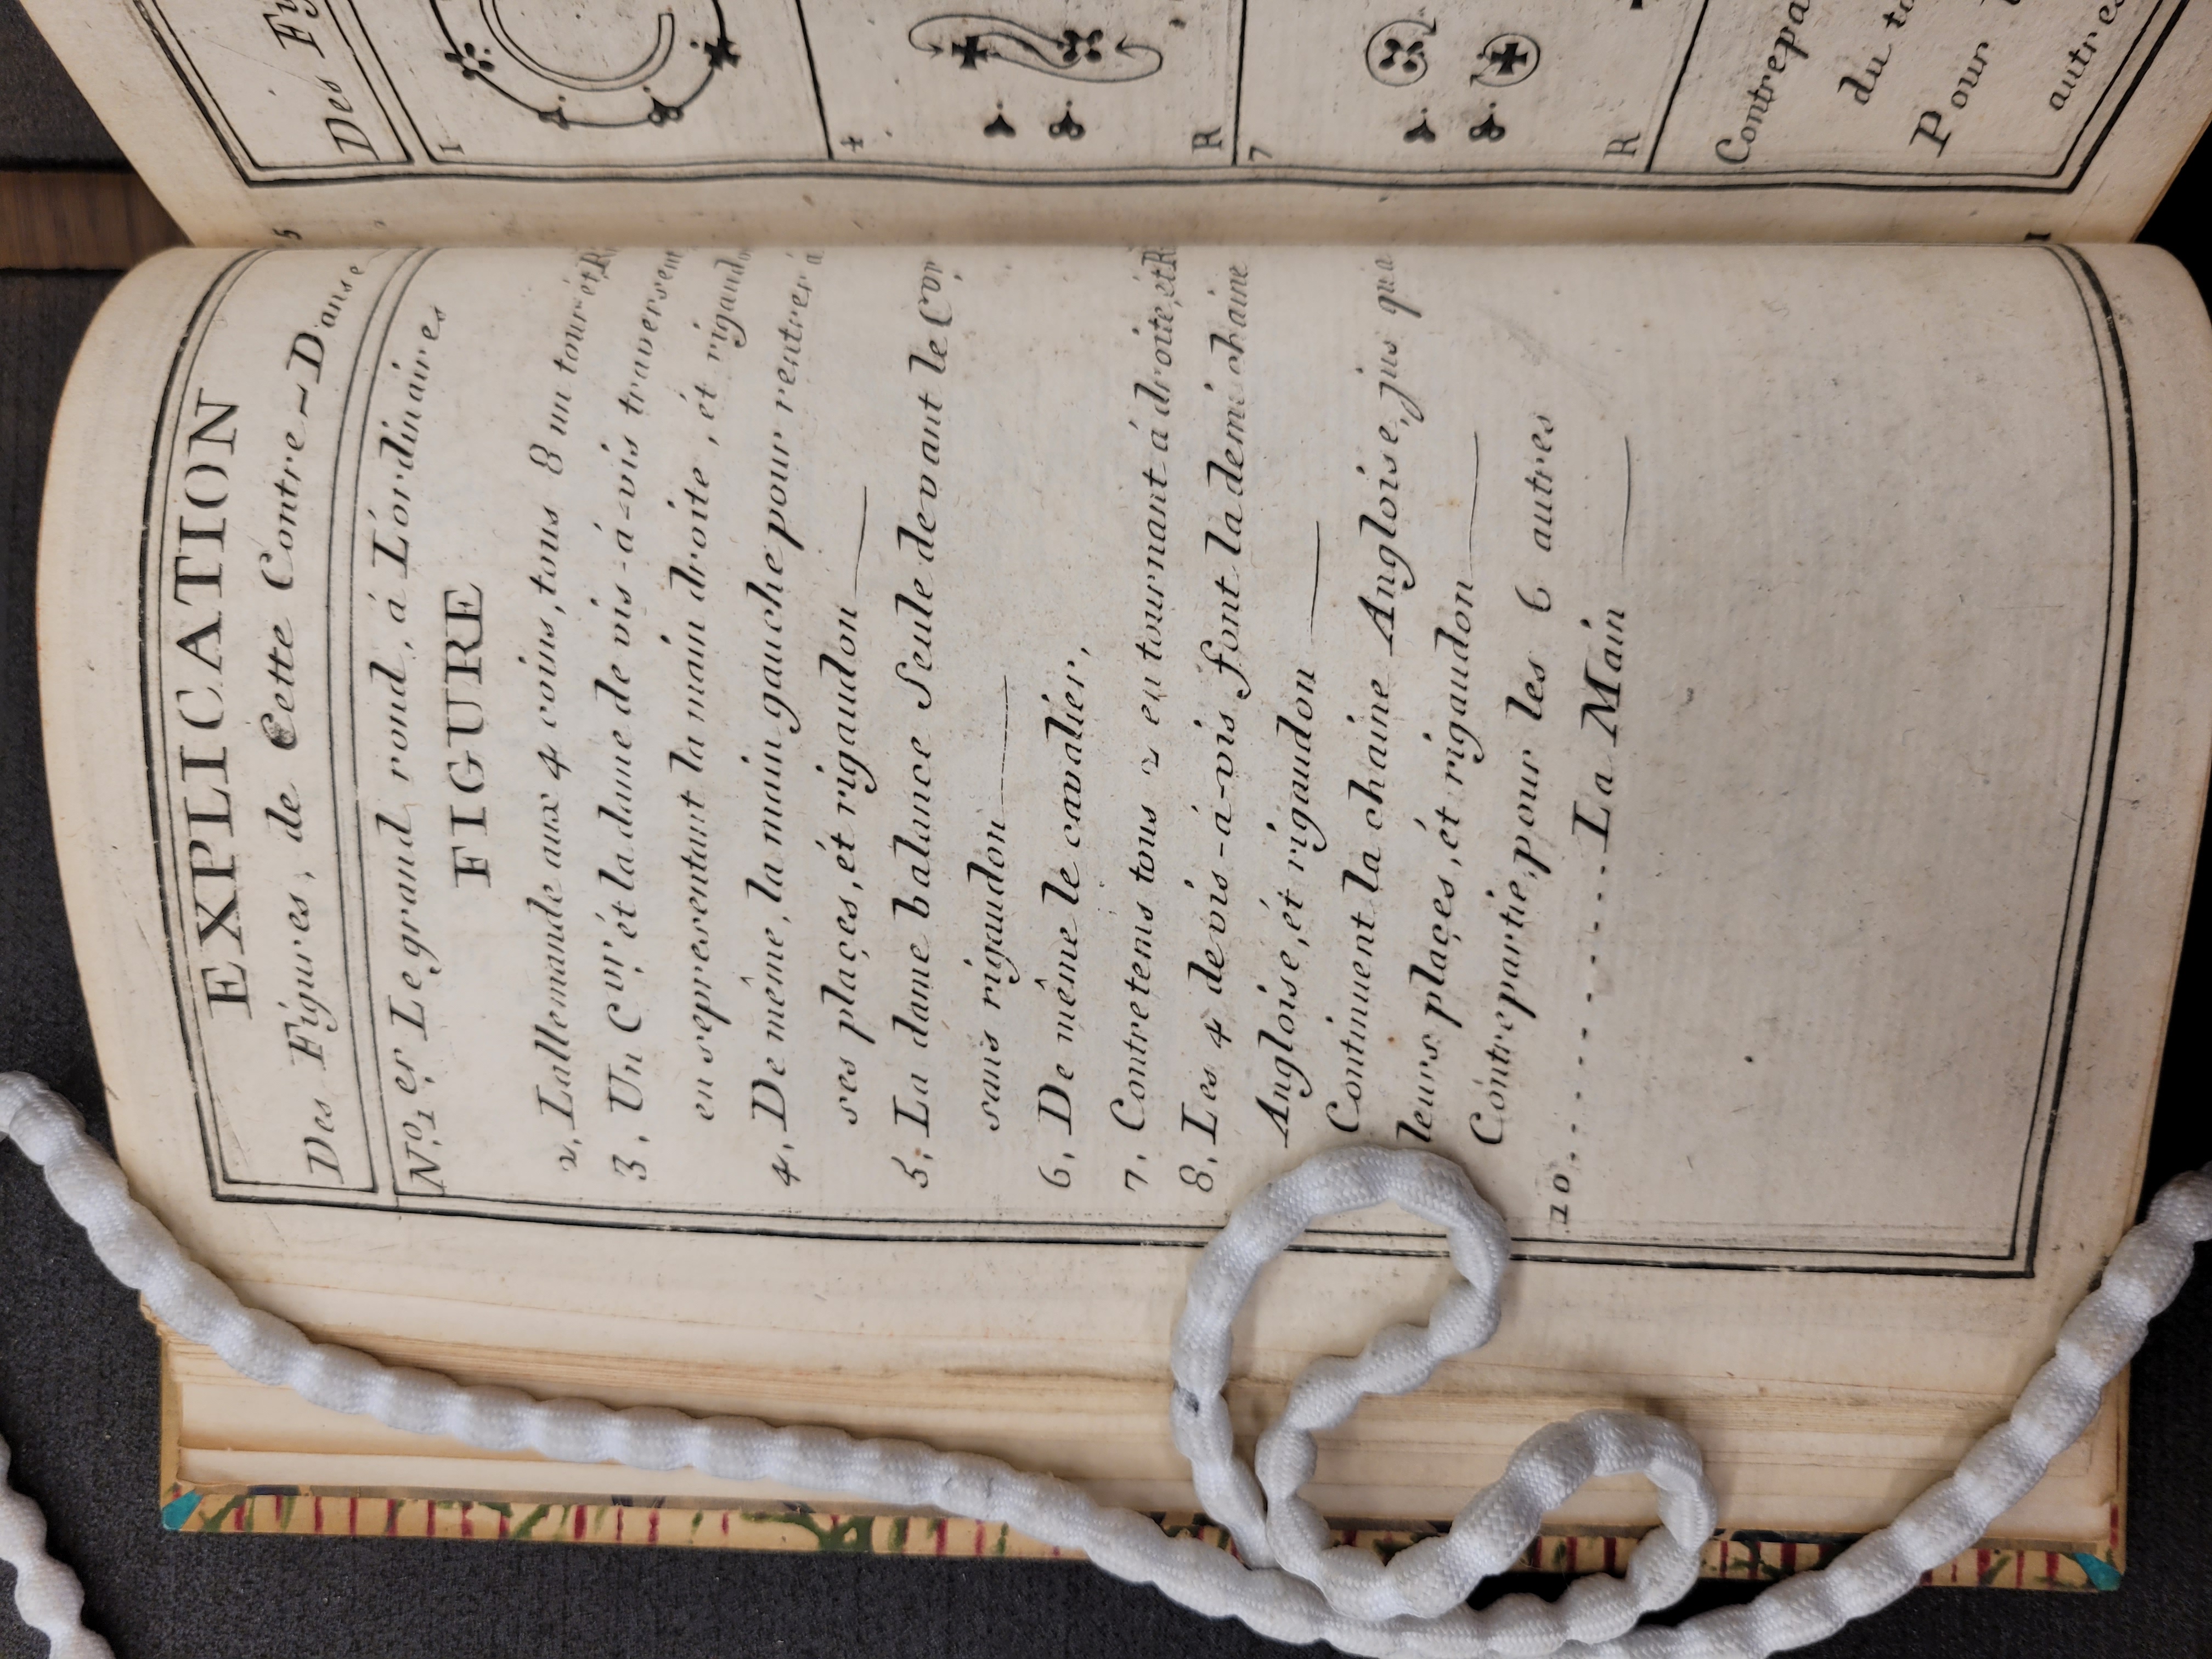 EXPLICATION
Des Figures, de Cette Contre~Danse
N.º 1.er Le grand rond, á L'ordinaires
FIGURE
2, Lallemande aux 4 coins, tous 8 un tour ét R
3, Un Cvr ét la dame de vis-á-vis traversem
en sepresentant la main droite, ét rigaudo
4, De même, la main gauche pour rentrer á
ses plaçes, ét rigaudon
5, La dame balance Seule devant le Cvr
sans rigaudon
6, De même le cavalier,
7, Contretems tous 2 en tournant á droite, ét R
8, Les 4 de vis-á-vis font la demi chaine
Angloise, ét rigaudon
Continuent la chaine Angloise, jus qu'a
leurs plaçes, ét rigaudon
Contrepartie, pour les 6 autres
10. . . . . . . . . . . . La Main
5
Des Fig
1
4
R
7
R
Contrepa
du to
Pour l
autres
1